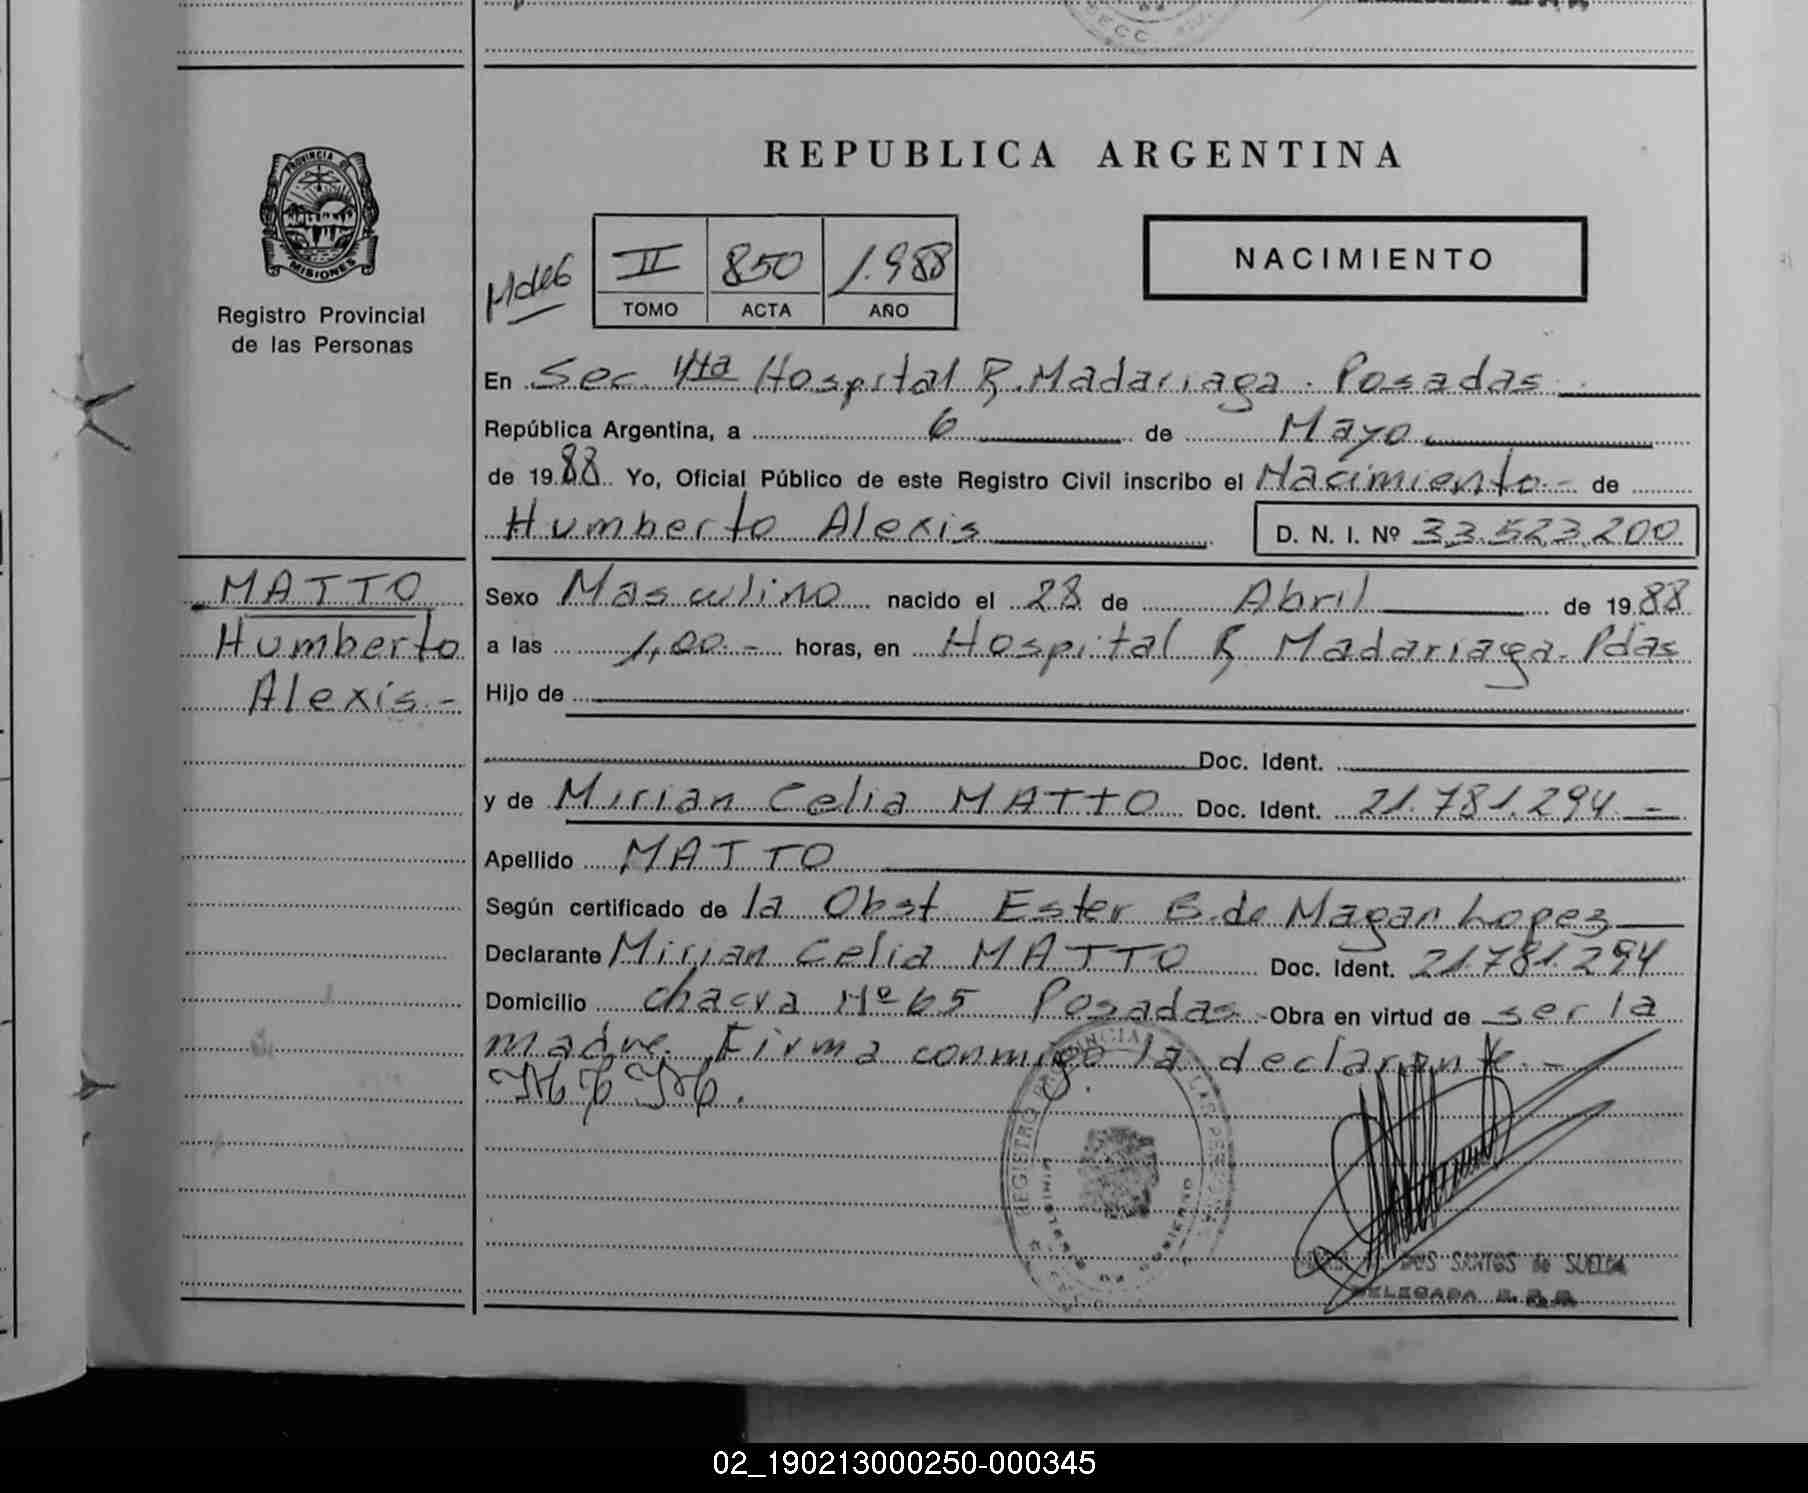 REPUBLICA ARGENTINA
PROVINCIA DE
MISIONES
Registro Provincial
de las Personas
II 850 1.988
TOMO ACTA AÑO
NACIMIENTO
En Sec 4ta Hospital R. Madariaga. Posadas
República Argentina, a 6 de Mayo
de 1988 Yo, Oficial Público de este Registro Civil inscribo el Nacimiento - de
Humberto Alexis D. N. I. Nº 33.523.200
MATTO
Humberto
Alexis -
Sexo Masculino nacido el 28 de Abril de 1988
a las 1,00.- horas, en Hospital R Madariaga. Pdas
Hijo de
Doc. Ident.
y de Mirian Celia MATTO Doc. Ident. 21.781.294.-
Apellido MATTO
Según certificado de la Obst Ester B. de Magan Lopez
Declarante Mirian Celia MATTO Doc. Ident. 21.781.294
Domicilio chacra Nº 65 Posadas - Obra en virtud de ser la
madre. Firma conmigo la declarante.-
REGISTRO PROVINCIAL LAS PERSONAS
DOS SANTOS de SUELDO
DELEGADA
02_190213000250-000345